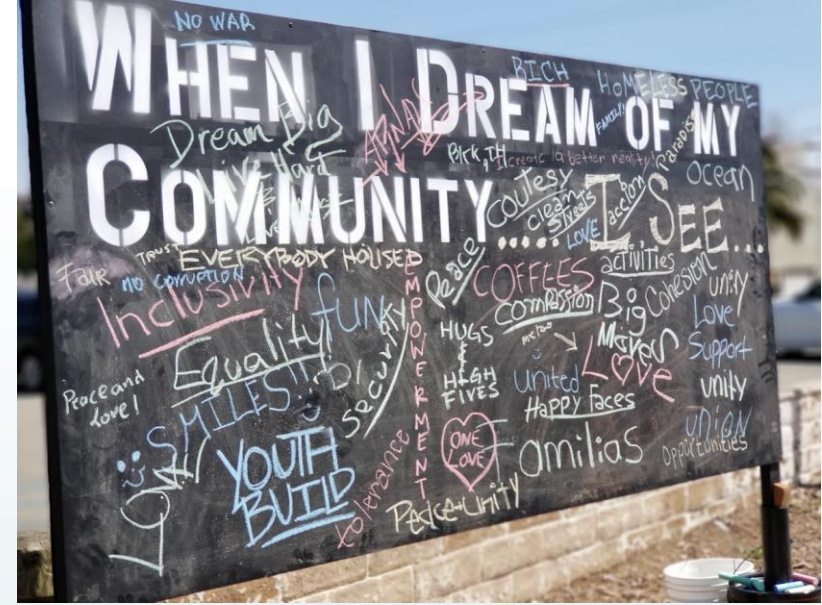 NO WAR
WHEN I DREAM OF MY
COMMUNITY..... I SEE...
BICH
HOMELESS PEOPLE
FAMILY'S
Dream Big
Live Hard
create a better reality!
Paradise
ocean
coutesy
clean streets
LOVE
action
TRUST
EVERYBODY HOUSED
Fair
NO CORRUPTION
Inclusivity
fUNKY
EMPOWERMENT
Peace
COFFEES
activities
compassion
Big
Cohesion
unity
Love
Support
unity
union
Opportunities
Equality!
SECURITY
HUGS
&
HIGH
FIVES
Moves
Love
united
Happy Faces
Peace and
Love!
SMILES!!
YOUTH
BUILD
tolerance
ONE
LOVE
Familias
Peace + Unity